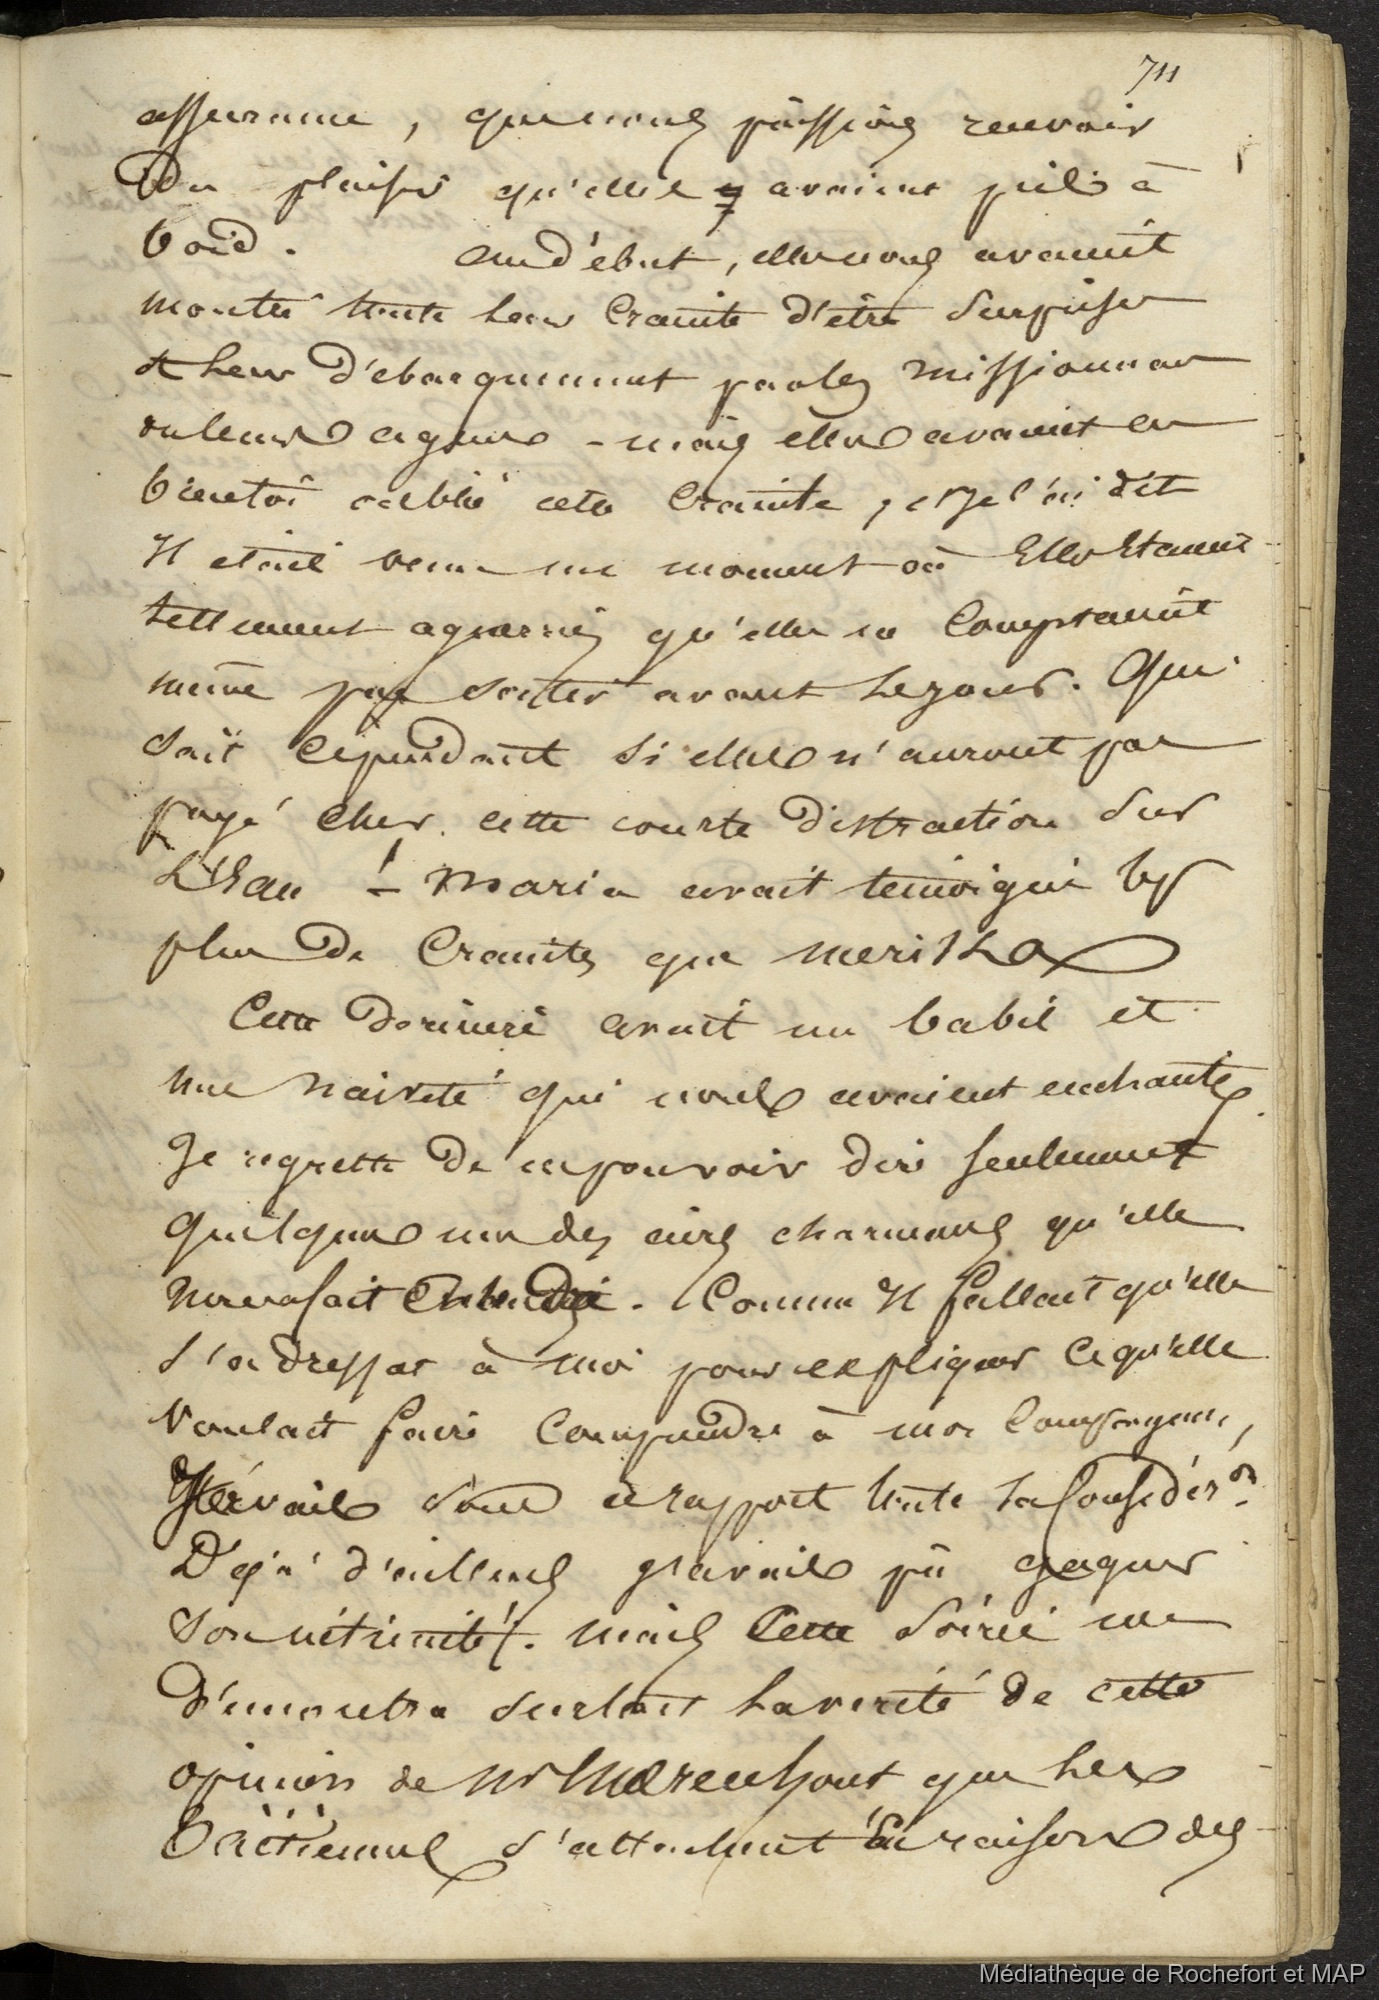 711
assurance, que nous puissions recevoir
du plaisir qu'elles avaient pris à
bord. Au début, elles nous avaient
montré toute leur crainte d'être surprises
à leur débarquement par les missionnaires
ou leurs agens - mais elles avaient en
bientôt oublié cette crainte, et je l'ai dit
Il était venu un moment où Elles Etaient
tellement aguerries qu'elles ne comptaient
même pas sortir avant le jour. Qui
sait cependant si elles n'auront pas
payé cher cette courte distraction sur
L'Eau ! - Maria avait témoigné bp
plus de craintes que meritha
Cette dernière avait un babil et
une naiveté qui nous avaient enchantés.
Je regrette de ne pouvoir dire seulement
quelques uns des airs charmans qu'elle
nous a fait Entendre. Comme Il fallait qu'elle
s'adressat à moi pour expliquer ce qu'elle
voulait faire comprendre à mes compagnons,
J'avais sous ce rapport toute sa Considér.on
Déjà d'ailleurs j'avais pû gagner
son intimité. mais Cette soirée me
démontra surtout la verité de cette
opinion de Mr Mærenhout que les
taïtiennes s'attachent En raison des
Médiathèque de Rochefort et MAP